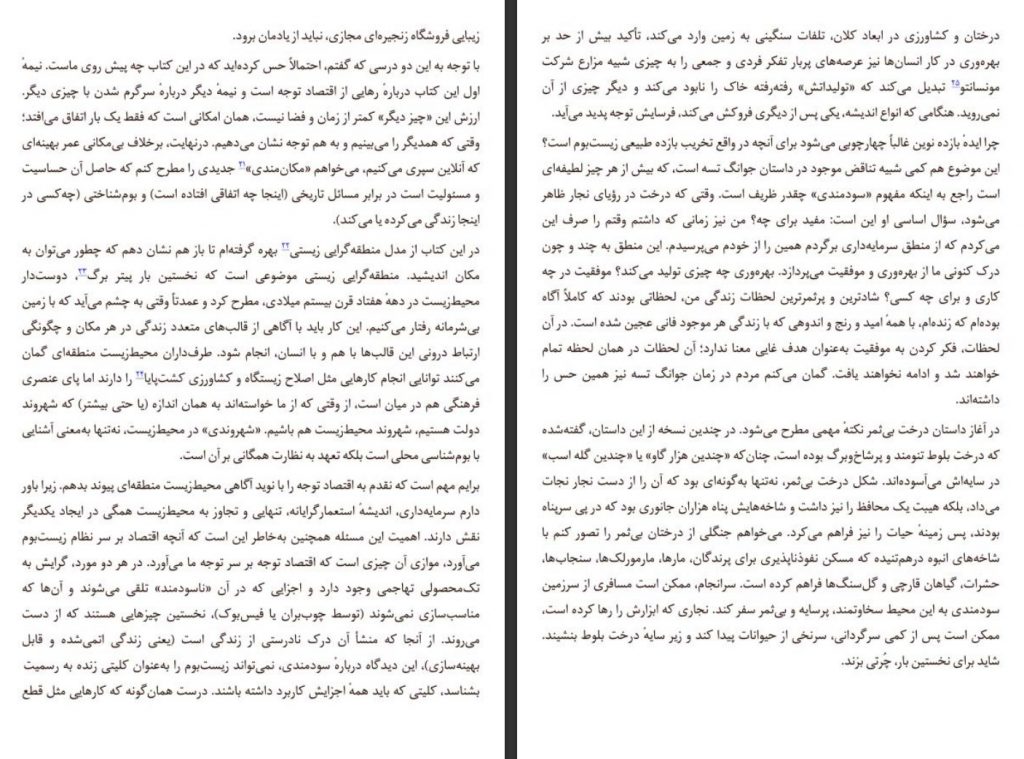 زیبایی فروشگاه زنجیره‌ای مجازی، نباید از یادمان برود.
با توجه به این دو درسی که گفتم، احتمالاً حس کرده‌اید که در این کتاب چه پیش روی ماست. نیمهٔ
اول این کتاب دربارهٔ رهایی از اقتصاد توجه است و نیمهٔ دیگر دربارهٔ سرگرم شدن با چیزی دیگر.
ارزش این «چیز دیگر» کمتر از زمان و فضا نیست، همان امکانی است که فقط یک بار اتفاق می‌افتد؛
وقتی که همدیگر را می‌بینیم و به هم توجه نشان می‌دهیم. درنهایت، برخلاف بی‌مکانی عمر بهینه‌ای
که آنلاین سپری می‌کنیم، می‌خواهم «مکان‌مندی»۲۱ جدیدی را مطرح کنم که حاصل آن حساسیت
و مسئولیت است در برابر مسائل تاریخی (اینجا چه اتفاقی افتاده است) و بوم‌شناختی (چه‌کسی در
اینجا زندگی می‌کرده یا می‌کند).
در این کتاب از مدل منطقه‌گرایی زیستی۲۲ بهره گرفته‌ام تا باز هم نشان دهم که چطور می‌توان به
مکان اندیشید. منطقه‌گرایی زیستی موضوعی است که نخستین بار پیتر برگ۲۳، دوست‌دار
محیط‌زیست در دههٔ هفتاد قرن بیستم میلادی، مطرح کرد و عمدتاً وقتی به چشم می‌آید که با زمین
بی‌شرمانه رفتار می‌کنیم. این کار باید با آگاهی از قالب‌های متعدد زندگی در هر مکان و چگونگی
ارتباط درونی این قالب‌ها با هم و با انسان، انجام شود. طرف‌داران محیط‌زیست منطقه‌ای گمان
می‌کنند توانایی انجام کارهایی مثل اصلاح زیستگاه و کشاورزی کشت‌پایا۲۴ را دارند اما پای عنصری
فرهنگی هم در میان است، از وقتی که از ما خواسته‌اند به همان اندازه (یا حتی بیشتر) که شهروند
دولت هستیم، شهروند محیط‌زیست هم باشیم. «شهروندی» در محیط‌زیست، نه‌تنها به‌معنی آشنایی
با بوم‌شناسی محلی است بلکه تعهد به نظارت همگانی بر آن است.
برایم مهم است که نقدم به اقتصاد توجه را با نوید آگاهی محیط‌زیست منطقه‌ای پیوند بدهم. زیرا باور
دارم سرمایه‌داری، اندیشهٔ استعمارگرایانه، تنهایی و تجاوز به محیط‌زیست همگی در ایجاد یکدیگر
نقش دارند. اهمیت این مسئله همچنین به‌خاطر این است که آنچه اقتصاد بر سر نظام زیست‌بوم
می‌آورد، موازی آن چیزی است که اقتصاد توجه بر سر توجه ما می‌آورد. در هر دو مورد، گرایش به
تک‌محصولی تهاجمی وجود دارد و اجزایی که در آن «ناسودمند» تلقی می‌شوند و آن‌ها که
مناسب‌سازی نمی‌شوند (توسط چوب‌بران یا فیس‌بوک)، نخستین چیزهایی هستند که از دست
می‌روند. از آنجا که منشأ آن درک نادرستی از زندگی است (یعنی زندگی اتمی‌شده و قابل
بهینه‌سازی)، این دیدگاه دربارهٔ سودمندی، نمی‌تواند زیست‌بوم را به‌عنوان کلیتی زنده به رسمیت
بشناسد، کلیتی که باید همهٔ اجزایش کاربرد داشته باشند. درست همان‌گونه که کارهایی مثل قطع
درختان و کشاورزی در ابعاد کلان، تلفات سنگینی به زمین وارد می‌کند، تأکید بیش از حد بر
بهره‌وری در کار انسان‌ها نیز عرصه‌های پربار تفکر فردی و جمعی را به چیزی شبیه مزارع شرکت
مونسانتو۲۵ تبدیل می‌کند که «تولیداتش» رفته‌رفته خاک را نابود می‌کند و دیگر چیزی از آن
نمی‌روید. هنگامی که انواع اندیشه، یکی پس از دیگری فروکش می‌کند، فرسایش توجه پدید می‌آید.
چرا ایدهٔ بازده نوین غالباً چهارچوبی می‌شود برای آنچه در واقع تخریب بازده طبیعی زیست‌بوم است؟
این موضوع هم کمی شبیه تناقض موجود در داستان جوانگ تسه است، که بیش از هر چیز لطیفه‌ای
است راجع به اینکه مفهوم «سودمندی» چقدر ظریف است. وقتی که درخت در رؤیای نجار ظاهر
می‌شود، سؤال اساسی او این است: مفید برای چه؟ من نیز زمانی که داشتم وقتم را صرف این
می‌کردم که از منطق سرمایه‌داری برگردم همین را از خودم می‌پرسیدم. این منطق به چند و چون
درک کنونی ما از بهره‌وری و موفقیت می‌پردازد. بهره‌وری چه چیزی تولید می‌کند؟ موفقیت در چه
کاری و برای چه کسی؟ شادترین و پرثمرترین لحظات زندگی من، لحظاتی بودند که کاملاً آگاه
بوده‌ام که زنده‌ام، با همهٔ امید و رنج و اندوهی که با زندگی هر موجود فانی عجین شده است. در آن
لحظات، فکر کردن به موفقیت به‌عنوان هدف غایی معنا ندارد؛ آن لحظات در همان لحظه تمام
خواهند شد و ادامه نخواهند یافت. گمان می‌کنم مردم در زمان جوانگ تسه نیز همین حس را
داشته‌اند.
در آغاز داستان درخت بی‌ثمر نکتهٔ مهمی مطرح می‌شود. در چندین نسخه از این داستان، گفته‌شده
که درخت بلوط تنومند و پرشاخ‌وبرگ بوده است، چنان‌که «چندین هزار گاو» یا «چندین گله اسب»
در سایه‌اش می‌آسوده‌اند. شکل درخت بی‌ثمر، نه‌تنها به‌گونه‌ای بود که آن را از دست نجار نجات
می‌داد، بلکه هیبت یک محافظ را نیز داشت و شاخه‌هایش پناه هزاران جانوری بود که در پی سرپناه
بودند، پس زمینهٔ حیات را نیز فراهم می‌کرد. می‌خواهم جنگلی از درختان بی‌ثمر را تصور کنم با
شاخه‌های انبوه درهم‌تنیده که مسکن نفوذناپذیری برای پرندگان، مارها، مارمولک‌ها، سنجاب‌ها،
حشرات، گیاهان قارچی و گل‌سنگ‌ها فراهم کرده است. سرانجام، ممکن است مسافری از سرزمین
سودمندی به این محیط سخاوتمند، پرسایه و بی‌ثمر سفر کند. نجاری که ابزارش را رها کرده است،
ممکن است پس از کمی سرگردانی، سرنخی از حیوانات پیدا کند و زیر سایهٔ درخت بلوط بنشیند.
شاید برای نخستین بار، چُرتی بزند.